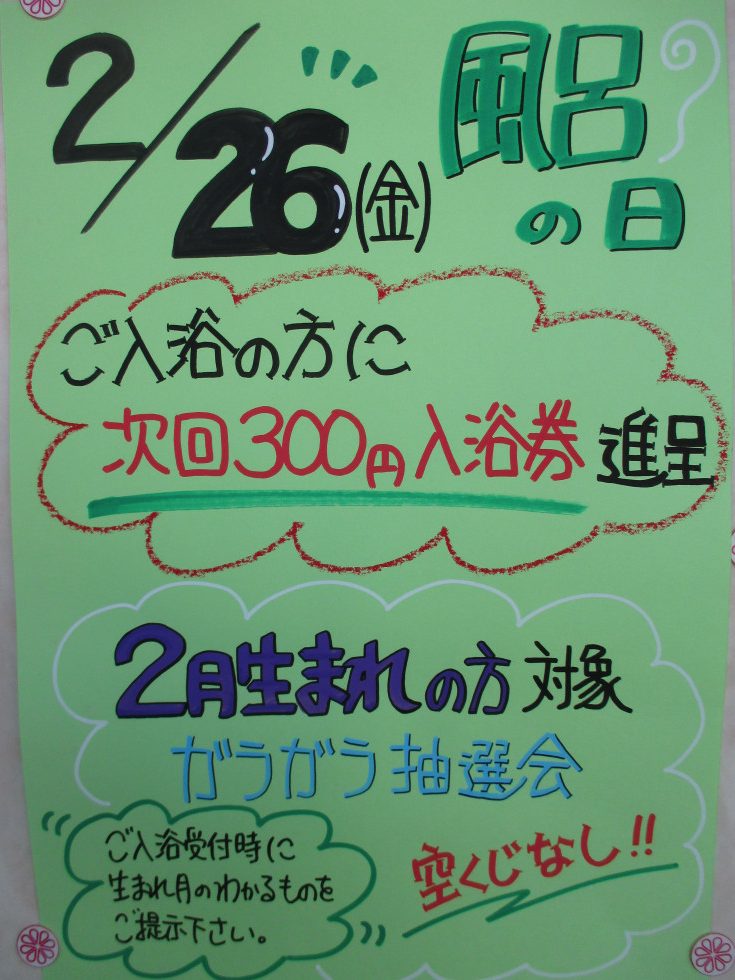 2/26(金)
風呂
の日
ご入浴の方に
次回300円入浴券 進呈
2月生まれの方 対象
ガラガラ抽選会
ご入浴受付時に
生まれ月のわかるものを
ご提示下さい。
空くじなし!!